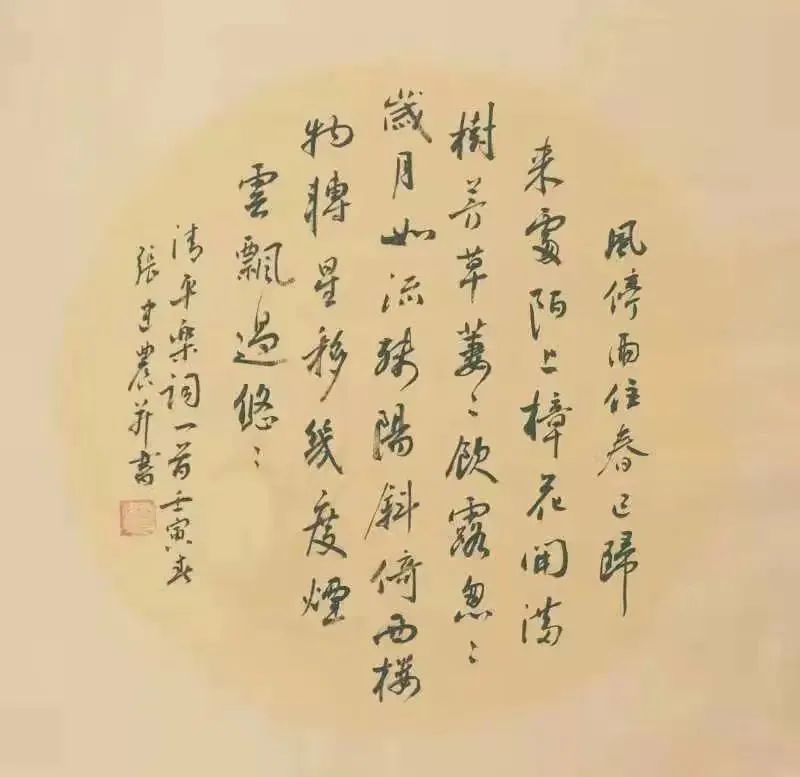 風停雨住春已歸
来處陌上樟花開滿
樹芳草萋〻飲露忽〻
歲月如流殘陽斜倚西樓
物轉星移幾度煙
雲飄過悠〻
清平樂词一首壬寅春
張建農并書